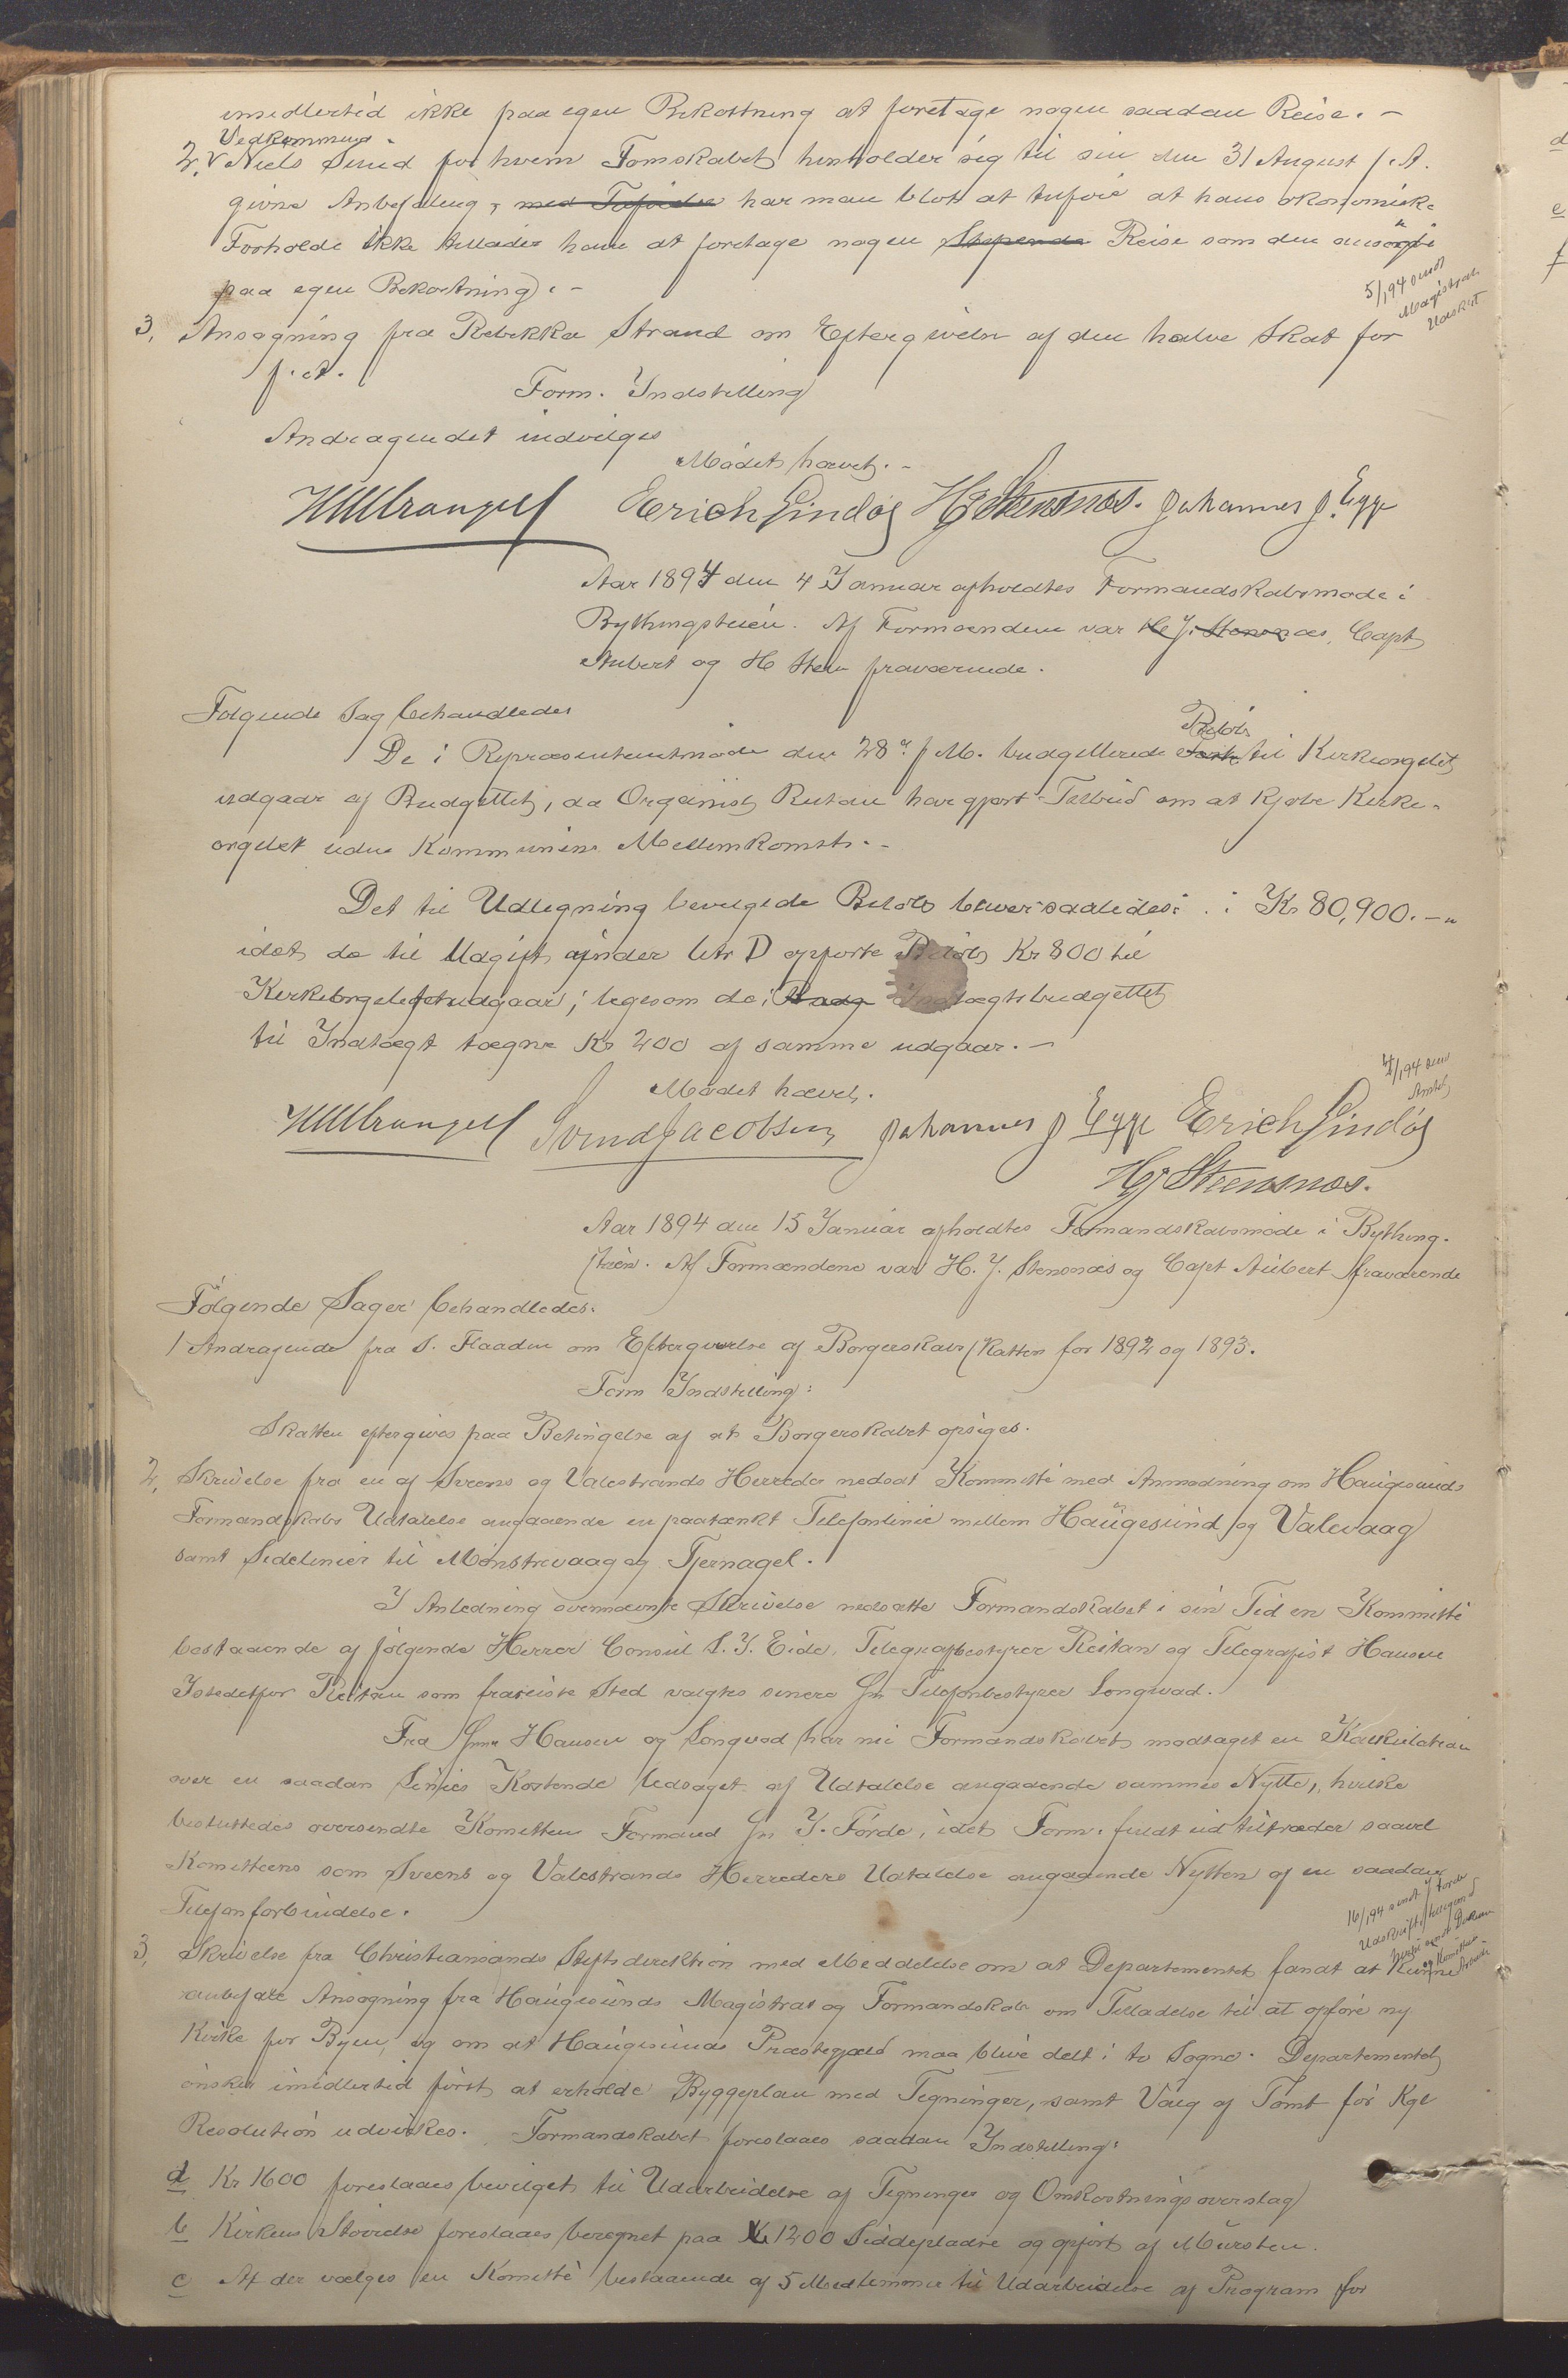 imidlertid ikke paa egen Bekostning at foretage nogen saadan Reise. -
Vedkommende
2, Niels Sund for hvem Formskabet henholder sig til sin den 31 August f. A.
givne Anbefaling, med Tilføielse har man blot at tilføie at hans økonomiske
Forholde ikke tillader ham at foretage nogen Stipende Reise som den ansøgte
paa egen Bekostning. -
5/1 94 sendt
Magistrat
Udskrift
3, Ansøgning fra Rebekka Strand om Eftergivelse af den halve Skat for
f. A.
Form. Indstilling
Andragendet indvilges
Mødet hævet. -
HWrangell Erich Lindøe HJStensnæs. Johannes J. Egge
Aar 1894 den 4 Januar afholdtes Formandskabsmøde i
Bythingstuen. Af Formændene var H. J. Stensnæs, Capt
Aubert og H Sten fraværende.
Følgende Sag behandledes
Beløb
De i Repræsentantmøde den 28de f. M. budgetterede til Kirkeorgelet
udgaar af Budgettet, da Organist Reitan har gjort Tilbud om at kjøbe Kirke-
orgelet uden Kommunens Mellemkomst. -
Det til Udligning bevilgede Beløb bliver saaledes: . : Kr 80,900. -"
idet de til Udgift under litr D opførte Beløb Kr 800 til
Kirkeorgelet udgaar, ligesom de i Indtægtsbudgettet
til Indtægt tægne Kr 200 af samme udgaar. -
4/1 94 sendt
Amtet
Mødet hævet.
HWrangell Svend Jacobsen Johannes J Egge Erich Lindøe
HJ Stensnæs.
Aar 1894 den 15 Januar afholdtes Formandskabsmøde i Bything-
stuen. Af Formændene var H. J. Stensnæs og Capt Aubert fraværende
Følgende Sager behandledes:
1 Andragende fra S. Flaaden om Eftergivelse af Borgerskabsskatten for 1892 og 1893.
Form Indstilling:
Skatten eftergives paa Betingelse af at Borgerskabet opsiges.
2, Skrivelse fra en af Sveens og Valestrands Herreder nedsat Kommitté med Anmodning om Haugesunds
Formandskabs Udtalelse angaaende en paatænkt Telefonlinie mellem Haugesund og Valevaag
samt Sidelinier til Mønstrevaag og Tjernagel.
I Anledning ovennævnte Skrivelse nedsatte Formandskabet i sin Tid en Kommitté
bestaaende af følgende Herrer Consul S. J. Eide, Telegrafbestyrer Reitan og Telegrafist Hansen
Istedetfor Reitan som frareiste Sted valgtes senere Hr Telefonbestyrer Longvad.
Fra Hrr Hansen og Longvad har nu Formandskabet modtaget en Kalkulation
over en saadan Linies Kostende ledsaget af Udtalelse angaaende sammes Nytte, hvilke
besluttedes oversendte Komitteen Formand Hr J. Førde, idet Form. fuldt ud tiltræder saavel
Komitteens som Sveens og Valestrands Herreders Udtalelse angaaende Nytten af en saadan
Telefonforbindelse.
16/1 94 sendt J Førde
3, Skrivelse fra Christiansands Stiftsdirektion med Meddelelse om at Departementet fandt at kunne
anbefale Ansøgning fra Haugesunds Magistrat og Formandskab om Tilladelse til at opføre ny
Kirke for Byen, og om at Haugesunds Præstegjæld maa blive delt i to Sogne. Departementet
ønsker imidlertid først at erholde Byggeplan med Tegninger, samt Valg af Tomt før Kgl
Resolution udvirkes. Formandskabet foreslaaes saadan Indstilling:
a Kr 1600 foreslaaes bevilget til Udarbeidelse af Tegninger og Omkostningsoverslag
b Kirkens Størrelse foreslaaes beregnet paa 1200 Siddepladse og opført af Mursten.
c At der vælges en Komitté bestaaende af 5 Medlemmer til Udarbeidelse af Program for